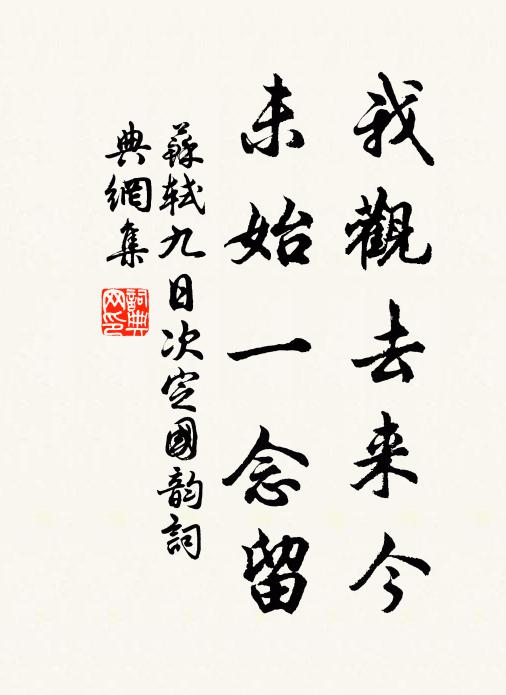 我觀去来今
未始一念留
蘇軾九日次定國韵詞
典網集
詞典
网印